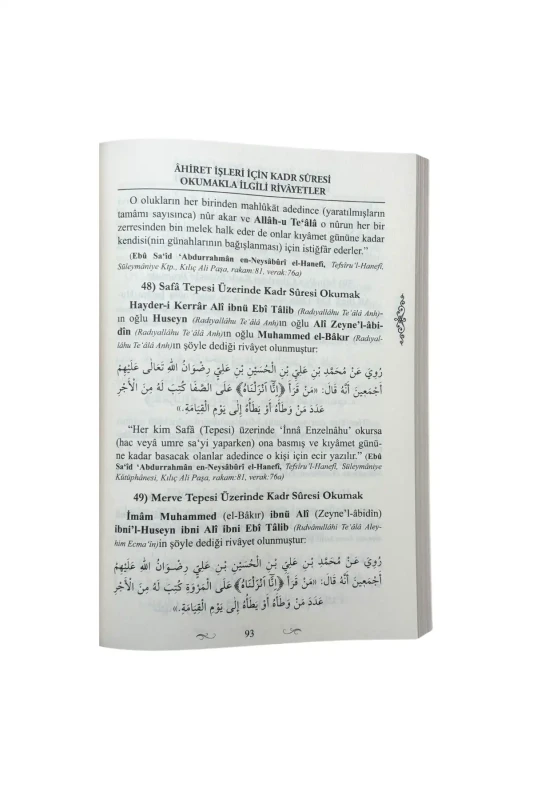 ÂHİRET İŞLERİ İÇİN KADR SÛRESİ
OKUMAKLA İLGİLİ RİVÂYETLER
O olukların her birinden mahlûkât adedince (yaratılmışların
tamâmı sayısınca) nûr akar ve Allâh-u Te‘âlâ o nûrun her bir
zerresinden bin melek halk eder de onlar kıyâmet gününe kadar
kendisi(nin günahlarının bağışlanması) için istiğfâr ederler.”
(Ebû Sa‘îd ‘Abdurrahmân en-Neysâbûrî el-Hanefî, Tefsîru’l-Hanefî,
Süleymâniye Ktp., Kılıç Ali Paşa, rakam:81, verak:76a)
48) Safâ Tepesi Üzerinde Kadr Sûresi Okumak
Hayder-i Kerrâr Alî ibnü Ebî Tâlib (Radıyallâhu Te‘âlâ Anh)-
ın oğlu Huseyn (Radıyallâhu Te‘âlâ Anh)ın oğlu Alî Zeyne’l-âbi-
dîn (Radıyallâhu Te‘âlâ Anh)ın oğlu Muhammed el-Bâkır (Radıyal-
lâhu Te‘âlâ Anh)ın şöyle dediği rivâyet olunmuştur:
رُوِيَ عَنْ مُحَمَّدِ بْنِ عَلِيِّ بْنِ الْحُسَيْنِ بْنِ عَلِيٍّ رِضْوَانُ اللهِ تَعَالَى عَلَيْهِمْ
أَجْمَعِينَ أَنَّهُ قَالَ: «مَنْ قَرَأَ ﴿إِنَّا أَنْزَلْنَاهُ﴾ عَلَى الصَّفَا كُتِبَ لَهُ مِنَ الْأَجْرِ
عَدَدَ مَنْ وَطَأَهُ أَوْ يَطَأُهُ إِلَى يَوْمِ الْقِيَامَةِ.»
“Her kim Safâ (Tepesi) üzerinde ‘İnnâ Enzelnâhu’ okursa
(hac veyâ umre sa‘yi yaparken) ona basmış ve kıyâmet günü-
ne kadar basacak olanlar adedince o kişi için ecir yazılır.” (Ebû
Sa‘îd ‘Abdurrahmân en-Neysâbûrî el-Hanefî, Tefsîru’l-Hanefî, Süleymâniye
Kütüphânesi, Kılıç Ali Paşa, rakam:81, verak:76a)
49) Merve Tepesi Üzerinde Kadr Sûresi Okumak
İmâm Muhammed (el-Bâkır) ibnü Alî (Zeyne’l-âbidîn)
ibni’l-Huseyn ibni Alî ibni Ebî Tâlib (Rıdvânullâhi Te‘âlâ Aley-
him Ecma‘în)in şöyle dediği rivâyet olunmuştur:
رُوِيَ عَنْ مُحَمَّدِ بْنِ عَلِيِّ بْنِ الْحُسَيْنِ بْنِ عَلِيٍّ رِضْوَانُ اللهِ عَلَيْهِمْ
أَجْمَعِينَ أَنَّهُ قَالَ: «مَنْ قَرَأَ ﴿إِنَّا أَنْزَلْنَاهُ﴾ عَلَى الْمَرْوَةِ كُتِبَ لَهُ مِنَ الْأَجْرِ
عَدَدَ مَنْ وَطَأَهُ أَوْ يَطَأُهُ إِلَى يَوْمِ الْقِيَامَةِ.»
93